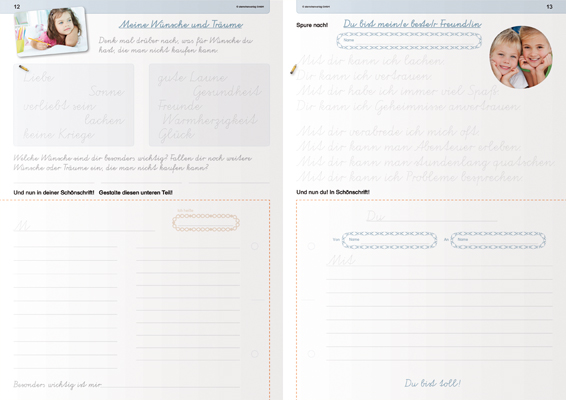 12
Meine Wünsche und Träume
Denk mal drüber nach, was für Wünsche du
hast, die man nicht kaufen kann.
Liebe
Sonne
verliebt sein
lachen
keine Kriege
gute Laune
Gesundheit
Freunde
Warmherzigkeit
Glück
Welche Wünsche sind dir besonders wichtig? Fallen dir noch weitere
Wünsche oder Träume ein, die man nicht kaufen kann?
Und nun in deiner Schönschrift! Gestalte diesen unteren Teil!
Besonders wichtig ist mir
13
Spure nach!
Du bist mein/e beste/r Freund/in
Name
Mit dir kann ich lachen.
Dir kann ich vertrauen.
Mit dir habe ich immer viel Spaß.
Dir kann ich Geheimnisse anvertrauen.
Mit dir verabrede ich mich oft.
Mit dir kann man Abenteuer erleben.
Mit dir kann man stundenlang quatschen.
Mit dir kann ich Probleme besprechen.
Und nun du! In Schönschrift!
Du
Von
Name
An
Name
Mit
Du bist toll!